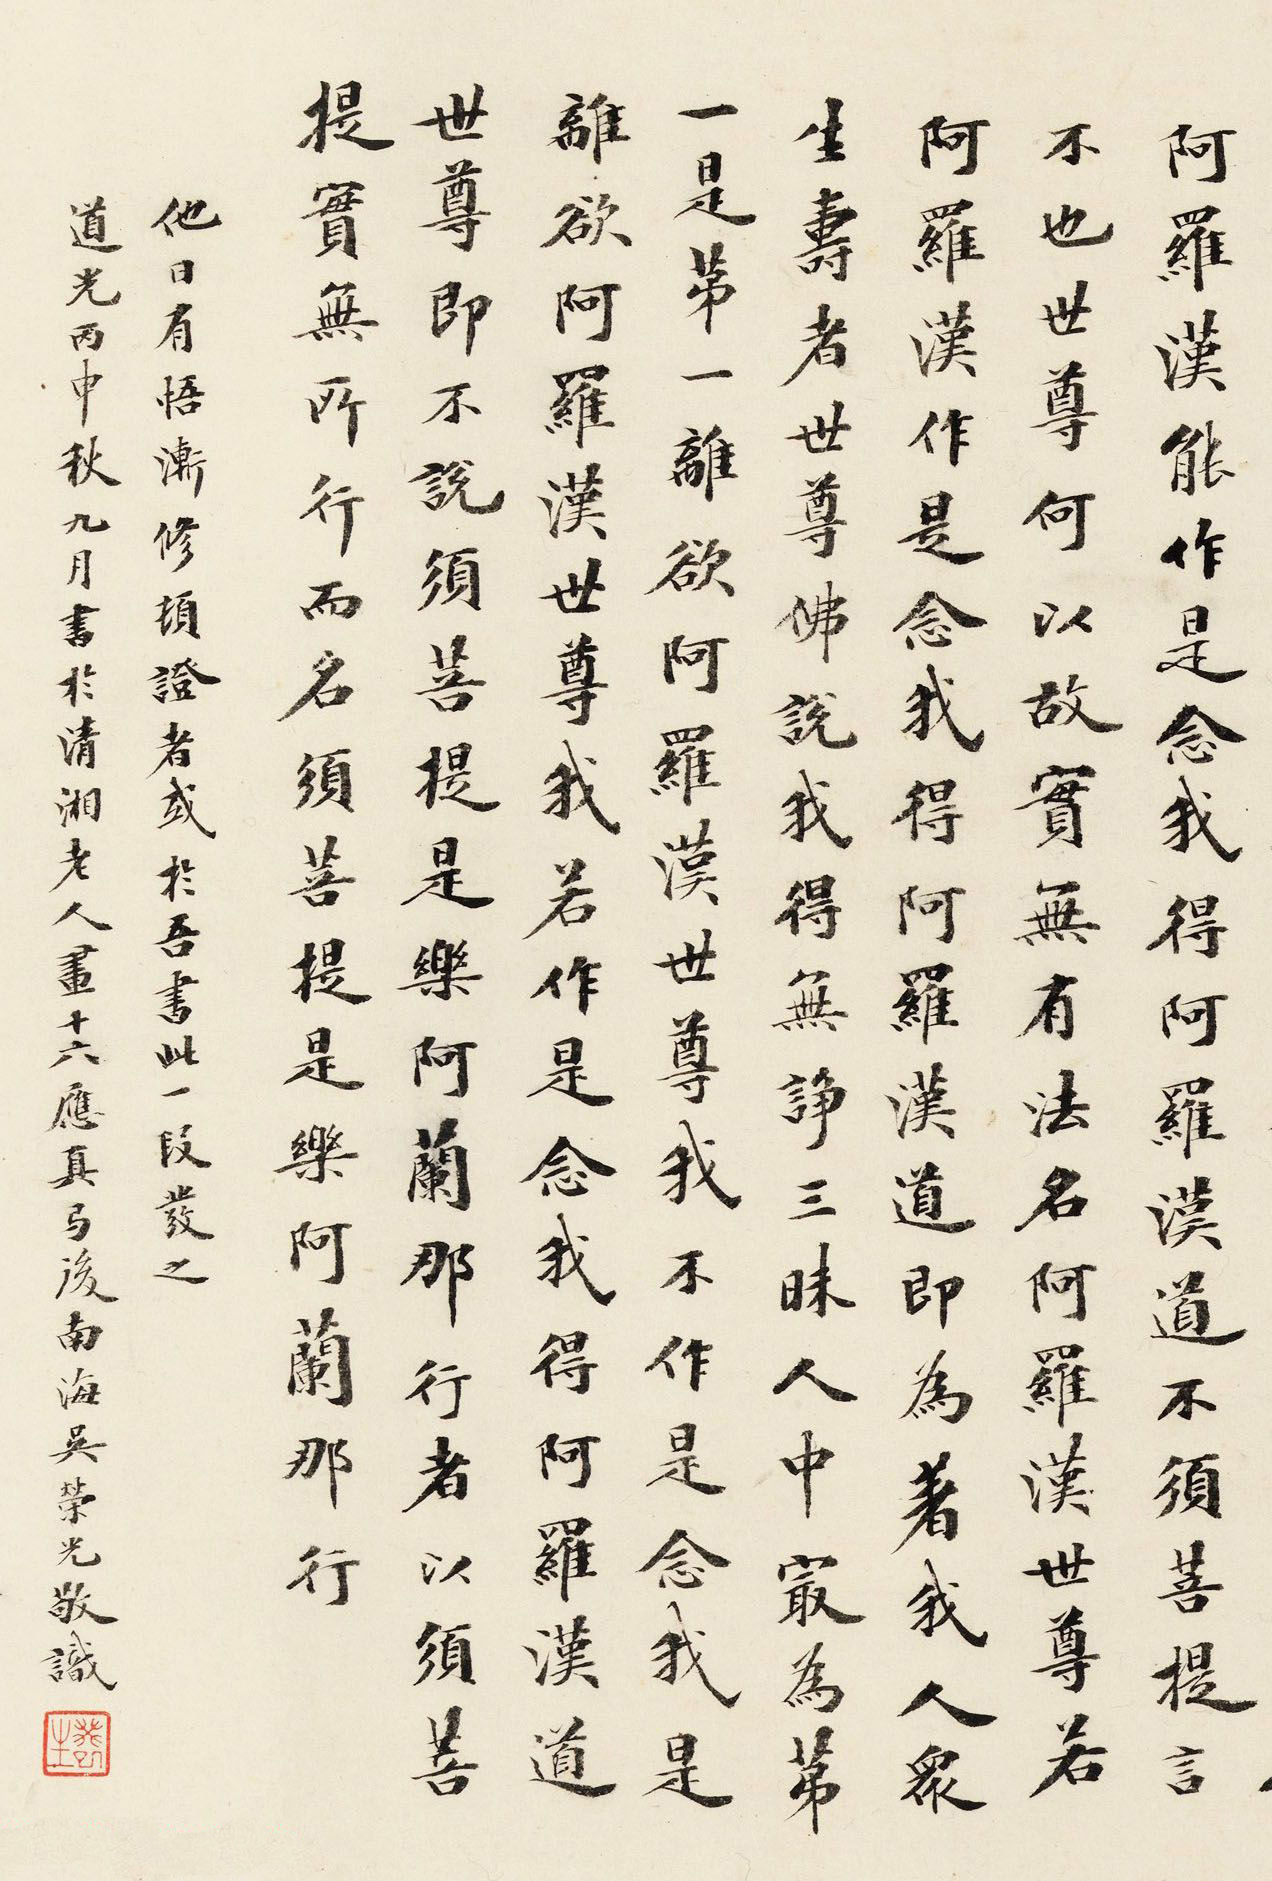 阿羅漢能作是念我得阿羅漢道不須菩提言
不也世尊何以故實無有法名阿羅漢世尊若
阿羅漢作是念我得阿羅漢道即為著我人眾
生壽者世尊佛說我得無諍三昧人中寂為第
一是第一離欲阿羅漢世尊我不作是念我是
離欲阿羅漢世尊我若作是念我得阿羅漢道
世尊即不說須菩提是樂阿蘭那行者以須菩
提實無所行而名須菩提是樂阿蘭那行
他日有悟漸修頓證者或於吾書此一段發之
道光丙申秋九月書於清湘老人畫十六應真弓後南海吳榮光敬識